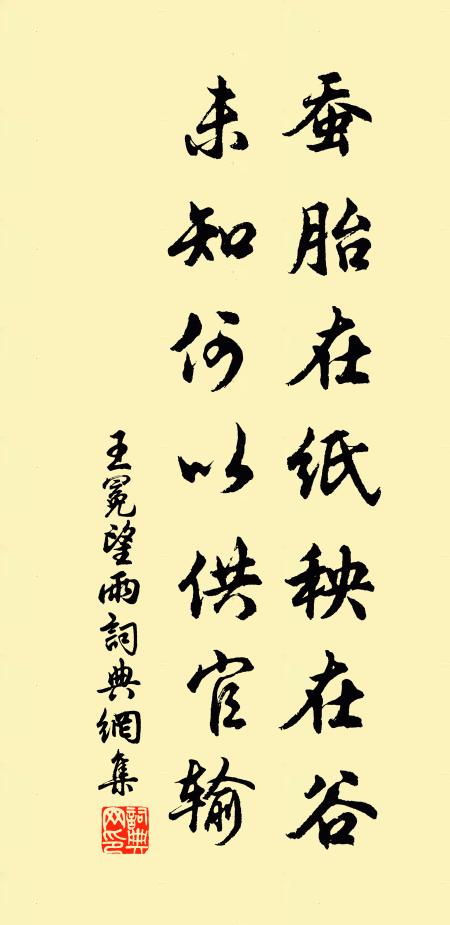 蚕胎在纸秧在谷
未知何以供官输
王冕望雨詞典網集
詞典网印